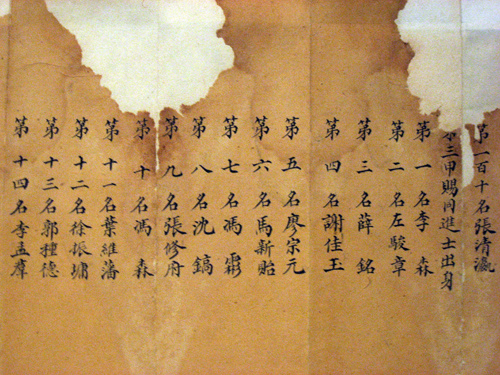 第一百十名張清瀛
第三甲賜同進士出身
第一名李森
第二名左駿章
第三名薛銘
第四名謝佳玉
第五名廖宗元
第六名馬新貽
第七名馮霖
第八名沈鎬
第九名張修府
第十名馮森
第十一名葉維藩
第十二名徐振墉
第十三名郭種德
第十四名李孟羣